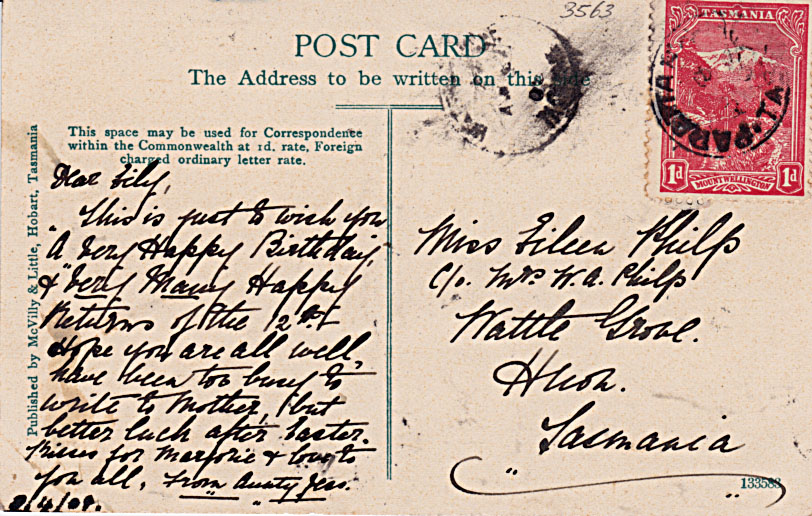 3563
POST CARD
The Address to be written on this side
TASMANIA
PARATTAH
TA
1d MOUNT WELLINGTON 1d
This space may be used for Correspondence
within the Commonwealth at 1d. rate, Foreign
charged ordinary letter rate.
Published by McVilly & Little, Hobart, Tasmania
Dear
This is just to wish you
A Very Happy Birthday,
& Very Many Happy
Returns of the 12th
Hope you are all well,
have been too busy to
write to Mother, but
better luck after Easter.
Kisses for Marjorie & love to
you all, From Aunty Jess.
Miss Eileen Philp
C/o. Mrs W. A. Philp
Wattle Grove.
Huon.
Tasmania
133583